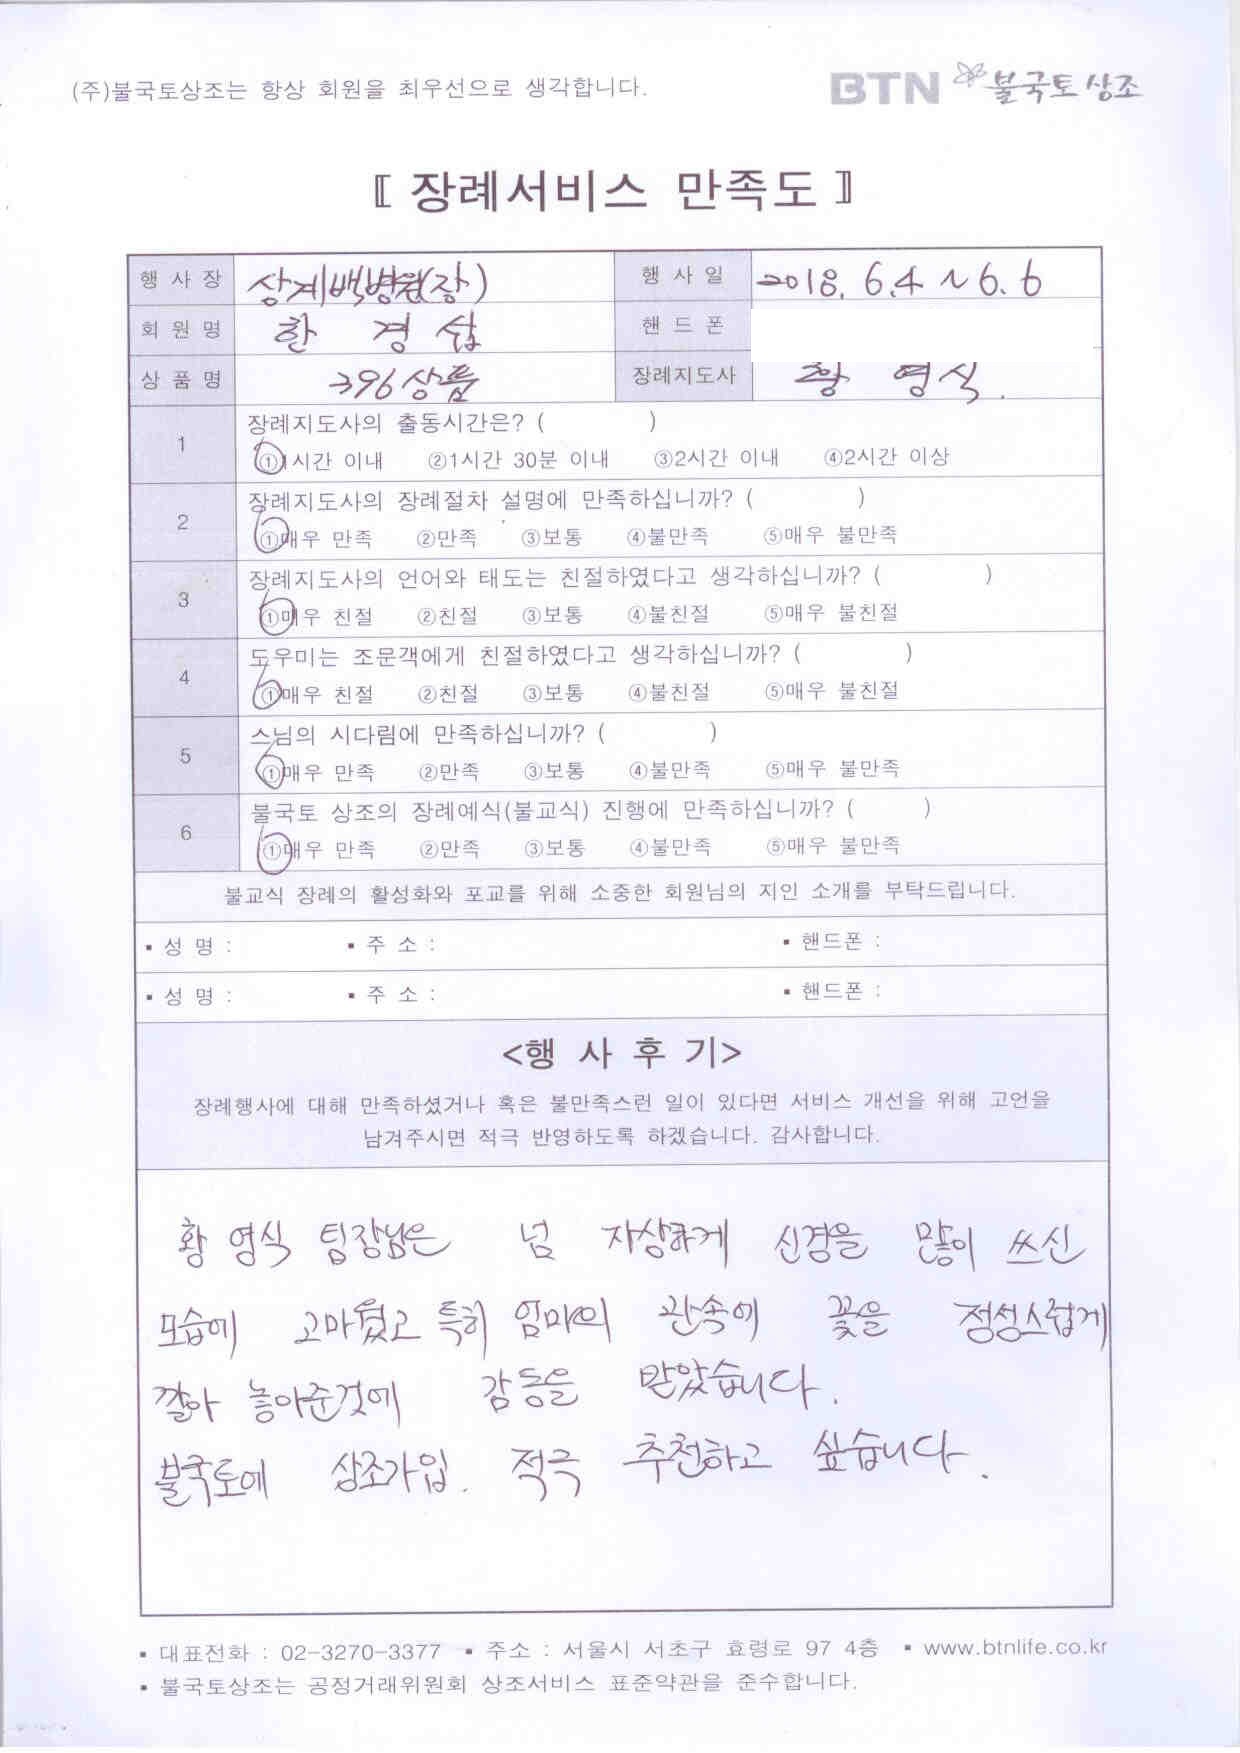 (주)불국토상조는 항상 회원을 최우선으로 생각합니다.
BTN 불국토 상조
〚 장례서비스 만족도 〛
행 사 장 상계백병원(장) 행 사 일 2018. 6.4 ~ 6. 6
회 원 명 한 경 섭 핸 드 폰
상 품 명 396상품 장례지도사 황 영식.
1 장례지도사의 출동시간은? ( )
①1시간 이내 ②1시간 30분 이내 ③2시간 이내 ④2시간 이상
2 장례지도사의 장례절차 설명에 만족하십니까? ( )
①매우 만족 ②만족 ③보통 ④불만족 ⑤매우 불만족
3 장례지도사의 언어와 태도는 친절하였다고 생각하십니까? ( )
①매우 친절 ②친절 ③보통 ④불친절 ⑤매우 불친절
4 도우미는 조문객에게 친절하였다고 생각하십니까? ( )
①매우 친절 ②친절 ③보통 ④불친절 ⑤매우 불친절
5 스님의 시다림에 만족하십니까? ( )
①매우 만족 ②만족 ③보통 ④불만족 ⑤매우 불만족
6 불국토 상조의 장례예식(불교식) 진행에 만족하십니까? ( )
①매우 만족 ②만족 ③보통 ④불만족 ⑤매우 불만족
불교식 장례의 활성화와 포교를 위해 소중한 회원님의 지인 소개를 부탁드립니다.
▪ 성 명 : ▪ 주 소 : ▪ 핸드폰 :
▪ 성 명 : ▪ 주 소 : ▪ 핸드폰 :
<행 사 후 기>
장례행사에 대해 만족하셨거나 혹은 불만족스런 일이 있다면 서비스 개선을 위해 고언을
남겨주시면 적극 반영하도록 하겠습니다. 감사합니다.
황 영식 팀장님은 넘 자상하게 신경을 많이 쓰신
모습에 고마웠고 특히 엄마의 관속에 꽃을 정성스럽게
깔아 놓아준것에 감동을 받았습니다.
불국토에 상조가입. 적극 추천하고 싶습니다.
▪ 대표전화 : 02-3270-3377 ▪ 주소 : 서울시 서초구 효령로 97 4층 ▪ www.btnlife.co.kr
▪ 불국토상조는 공정거래위원회 상조서비스 표준약관을 준수합니다.